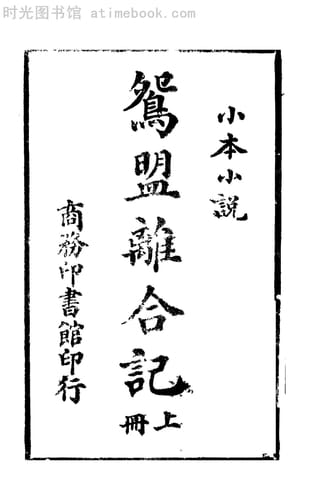 时光图书馆 atimebook.com
小本小説
鴛盟離合記
上冊
商務印書館印行